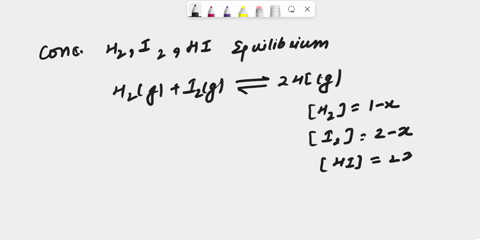 Conc. H2, I2, HI Equilibrium
H2(g) + I2(g) ⇌ 2HI(g)
[H2] = 1-x
[I2] = 2-x
[HI] = 2